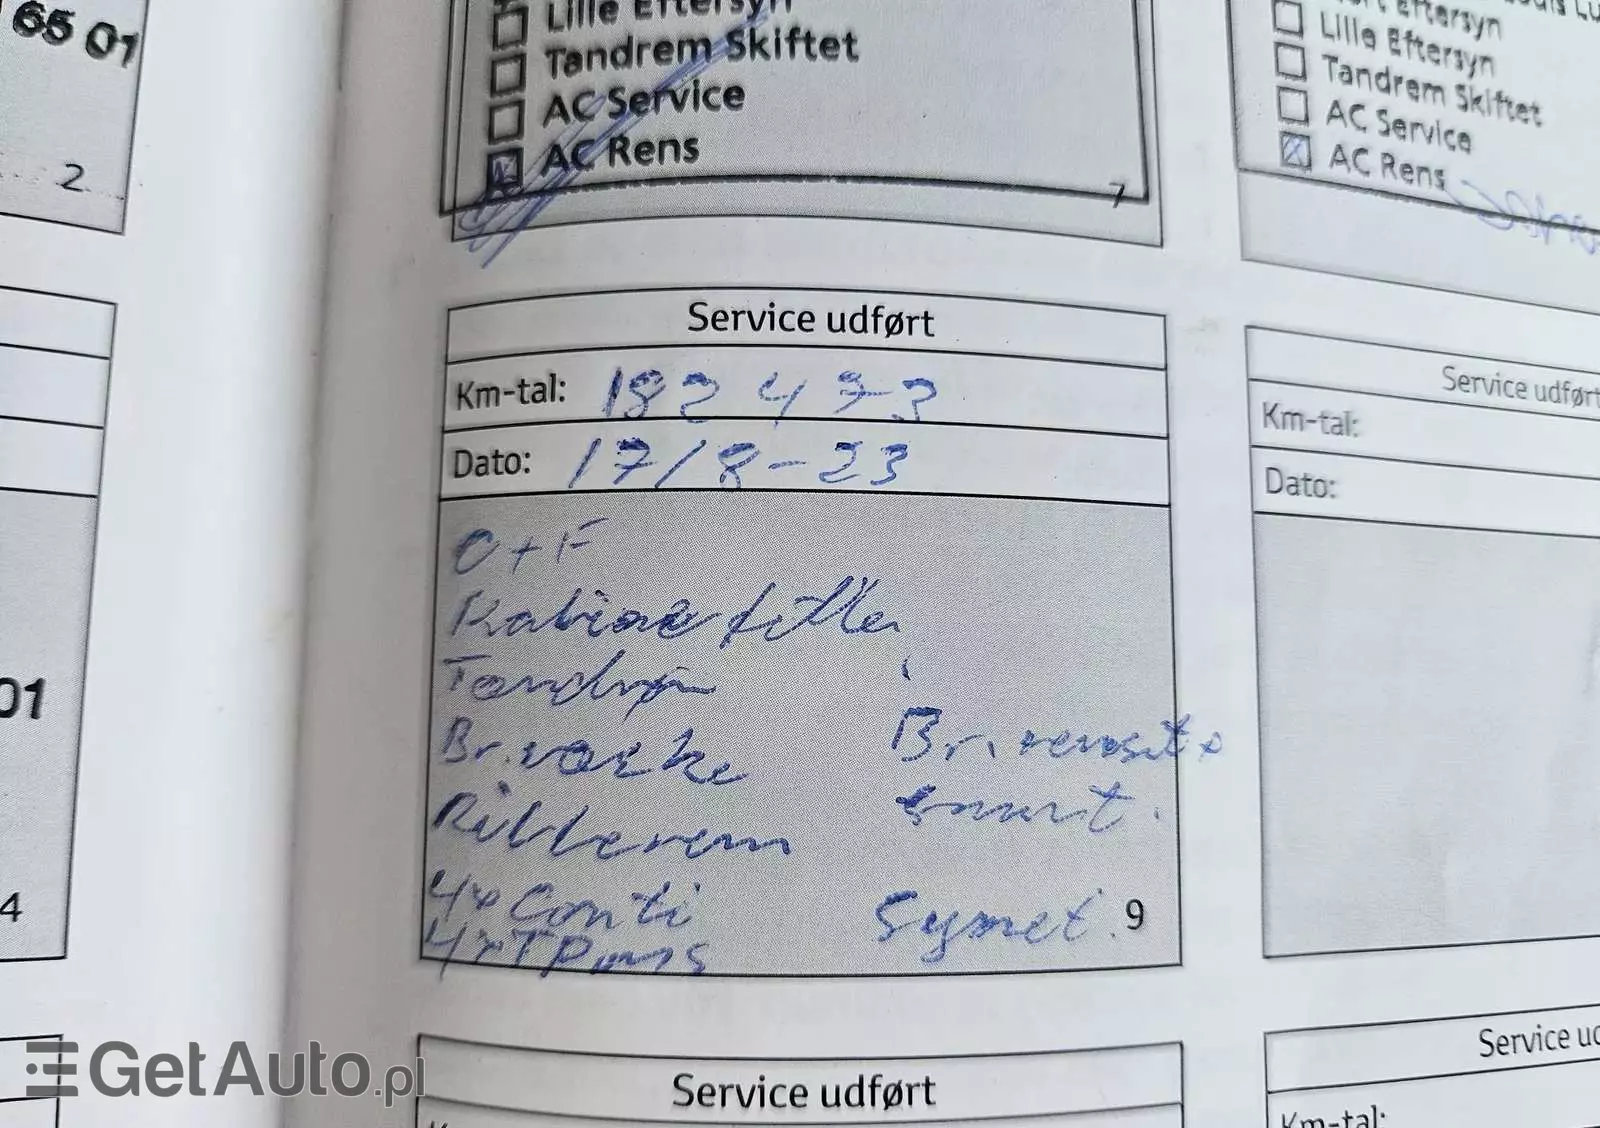 65 01
2
Lille Eftersyn
Tandrem Skiftet
AC Service
AC Rens
7
Eftersyn
Lille Eftersyn
Tandrem Skiftet
AC Service
AC Rens
Service udført
Km-tal: 182 473
Dato: 17/8-23
O+F
Kabine filter
Br.væske
Br. renset +
smurt.
Ribberem
4x Conti
Symet.
9
Service udført
Km-tal:
Dato:
01
4
Service udført
Service
Km-tal:
GetAuto.pl